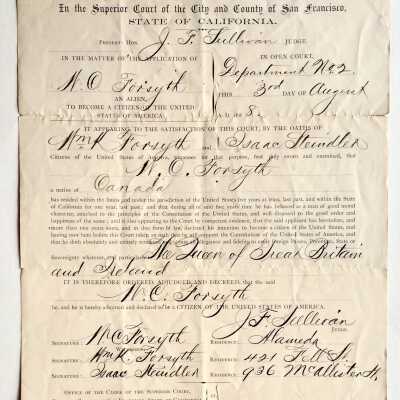 In the Superior Court of the City and County of San Francisco,
STATE OF CALIFORNIA.
PRESENT: HON. J. F. Sullivan JUDGE.
IN THE MATTER OF THE APPLICATION OF IN OPEN COURT,
W. C. Forsyth Department No 2.
AN ALIEN, THIS 3rd DAY OF August
TO BECOME A CITIZEN OF THE UNITED
STATES OF AMERICA
IT APPEARING TO THE SATISFACTION OF THIS COURT, BY THE OATHS OF
Wm K Forsyth and Isaac Steindler
Citizens of the United States of America, witnesses for that purpose, first duly sworn and examined, that
W. C. Forsyth
a native of Canada
has resided within the limits and under the jurisdiction of the United States five years at least, last past, and within the State
of California for one year, last past; and that during all of said five years' time he has behaved as a man of good moral
character, attached to the principles of the Constitution of the United States, and well disposed to the good order and
happiness of the same; and it also appearing to the Court by competent evidence, that the said applicant has heretofore, and
more than two years since, and in due form of law declared his intention to become a citizen of the United States, and
having now here before this Court taken an oath that he will support the Constitution of the United States of America, and
that he doth absolutely and entirely renounce and abjure all allegiance and fidelity to every foreign Prince, Potentate, State or
Sovereignty whatever, and particularly to The Queen of Great Britain
and Ireland
IT IS THEREFORE ORDERED, ADJUDGED AND DECREED, that the said
W. C. Forsyth
be, and he is hereby admitted and declared to be a CITIZEN OF THE UNITED STATES OF AMERICA.
J F Sullivan
JUDGE.
SIGNATURE: W C Forsyth RESIDENCE: Alameda
SIGNATURE: Wm K. Forsyth RESIDENCE: 421 Fell St.
SIGNATURE: Isaac Steindler RESIDENCE: 936 McAllister St.
OFFICE OF THE CLERK OF THE SUPERIOR COURT,